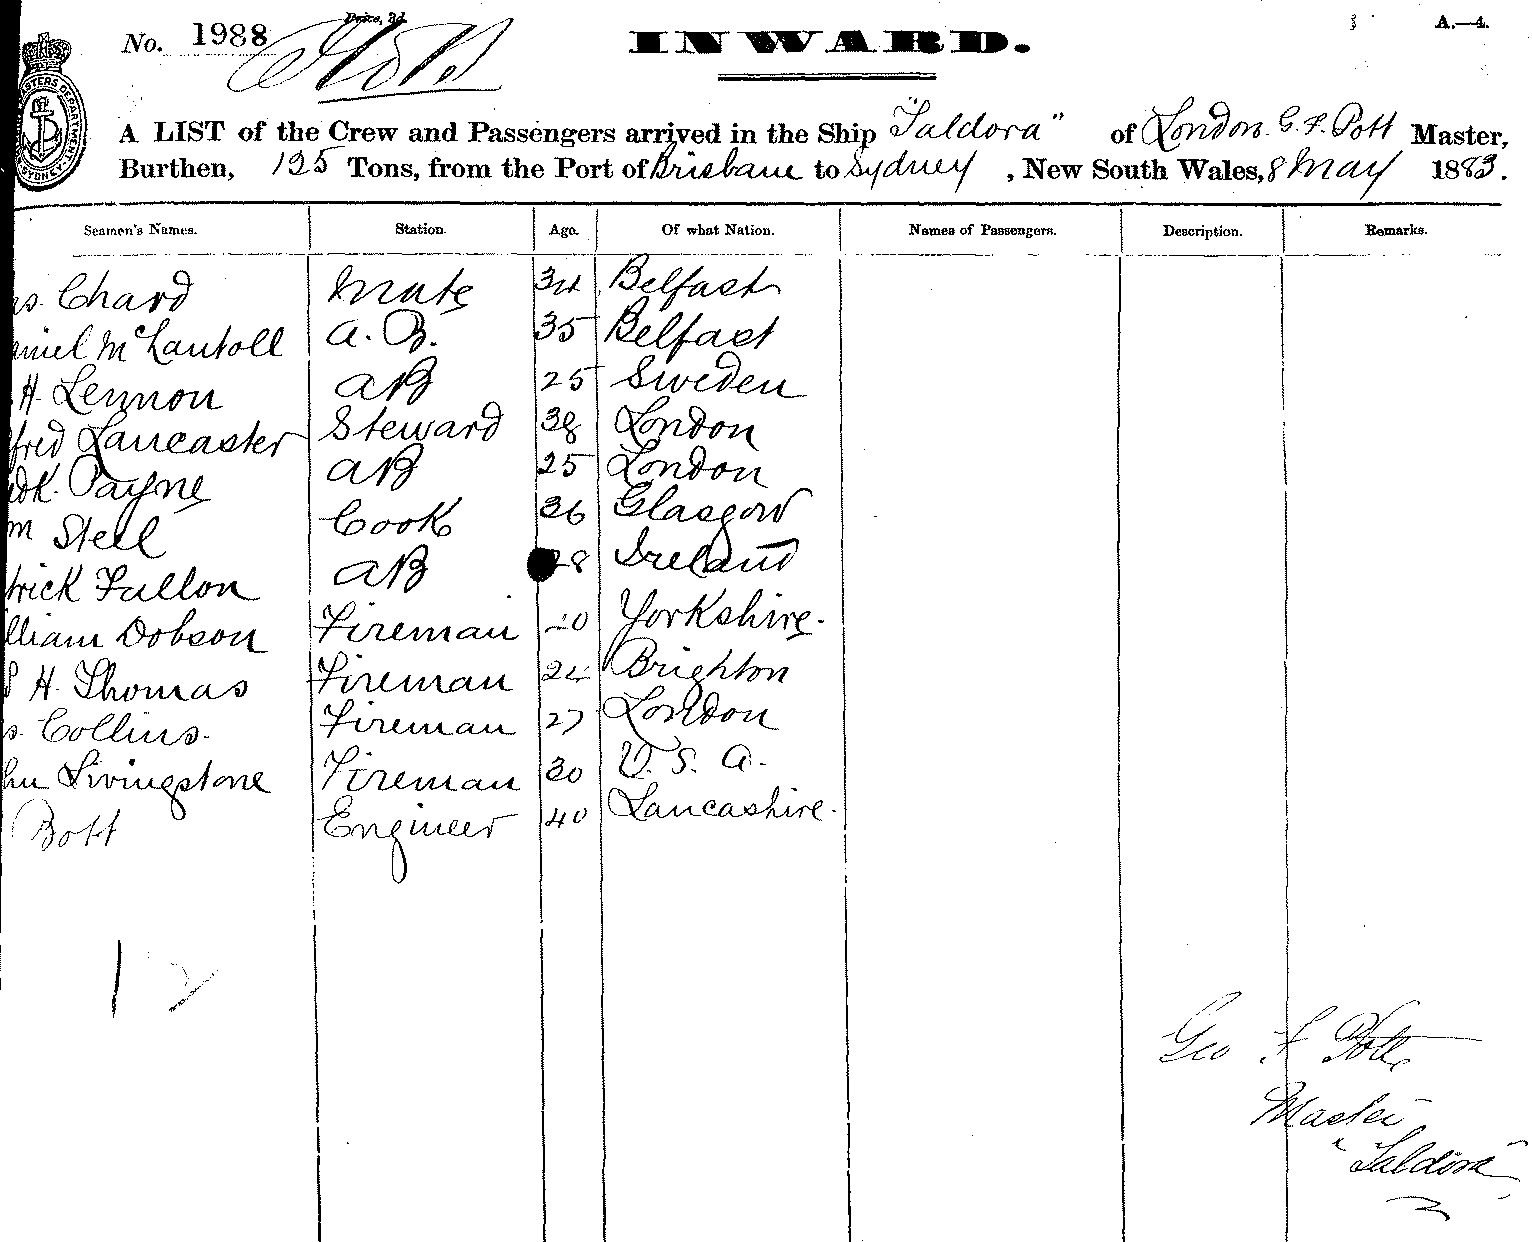 No. 1988 Price, 3d.
INWARD.
A.—4.
A LIST of the Crew and Passengers arrived in the Ship "Taldora" of London. G. F. Pott Master,
Burthen, 125 Tons, from the Port of Brisbane to Sydney, New South Wales, 8 May 1883.
Seamen's Names. Station. Age. Of what Nation. Names of Passengers. Description. Remarks.
Chard Mate 34 Belfast
A. B. 35 Belfast
H. Lennon AB 25 Sweden
Lancaster Steward 38 London
Payne AB 25 London
Stell Cook 36 Glasgow
Fullon AB 28 Ireland
Dobson Fireman Yorkshire.
H. Thomas Fireman 24 Brighton
Collins. Fireman 27 London
Livingstone Fireman 30 U. S. A.
Bott Engineer 40 Lancashire.
12
Geo F Pott
Master
"Taldora"